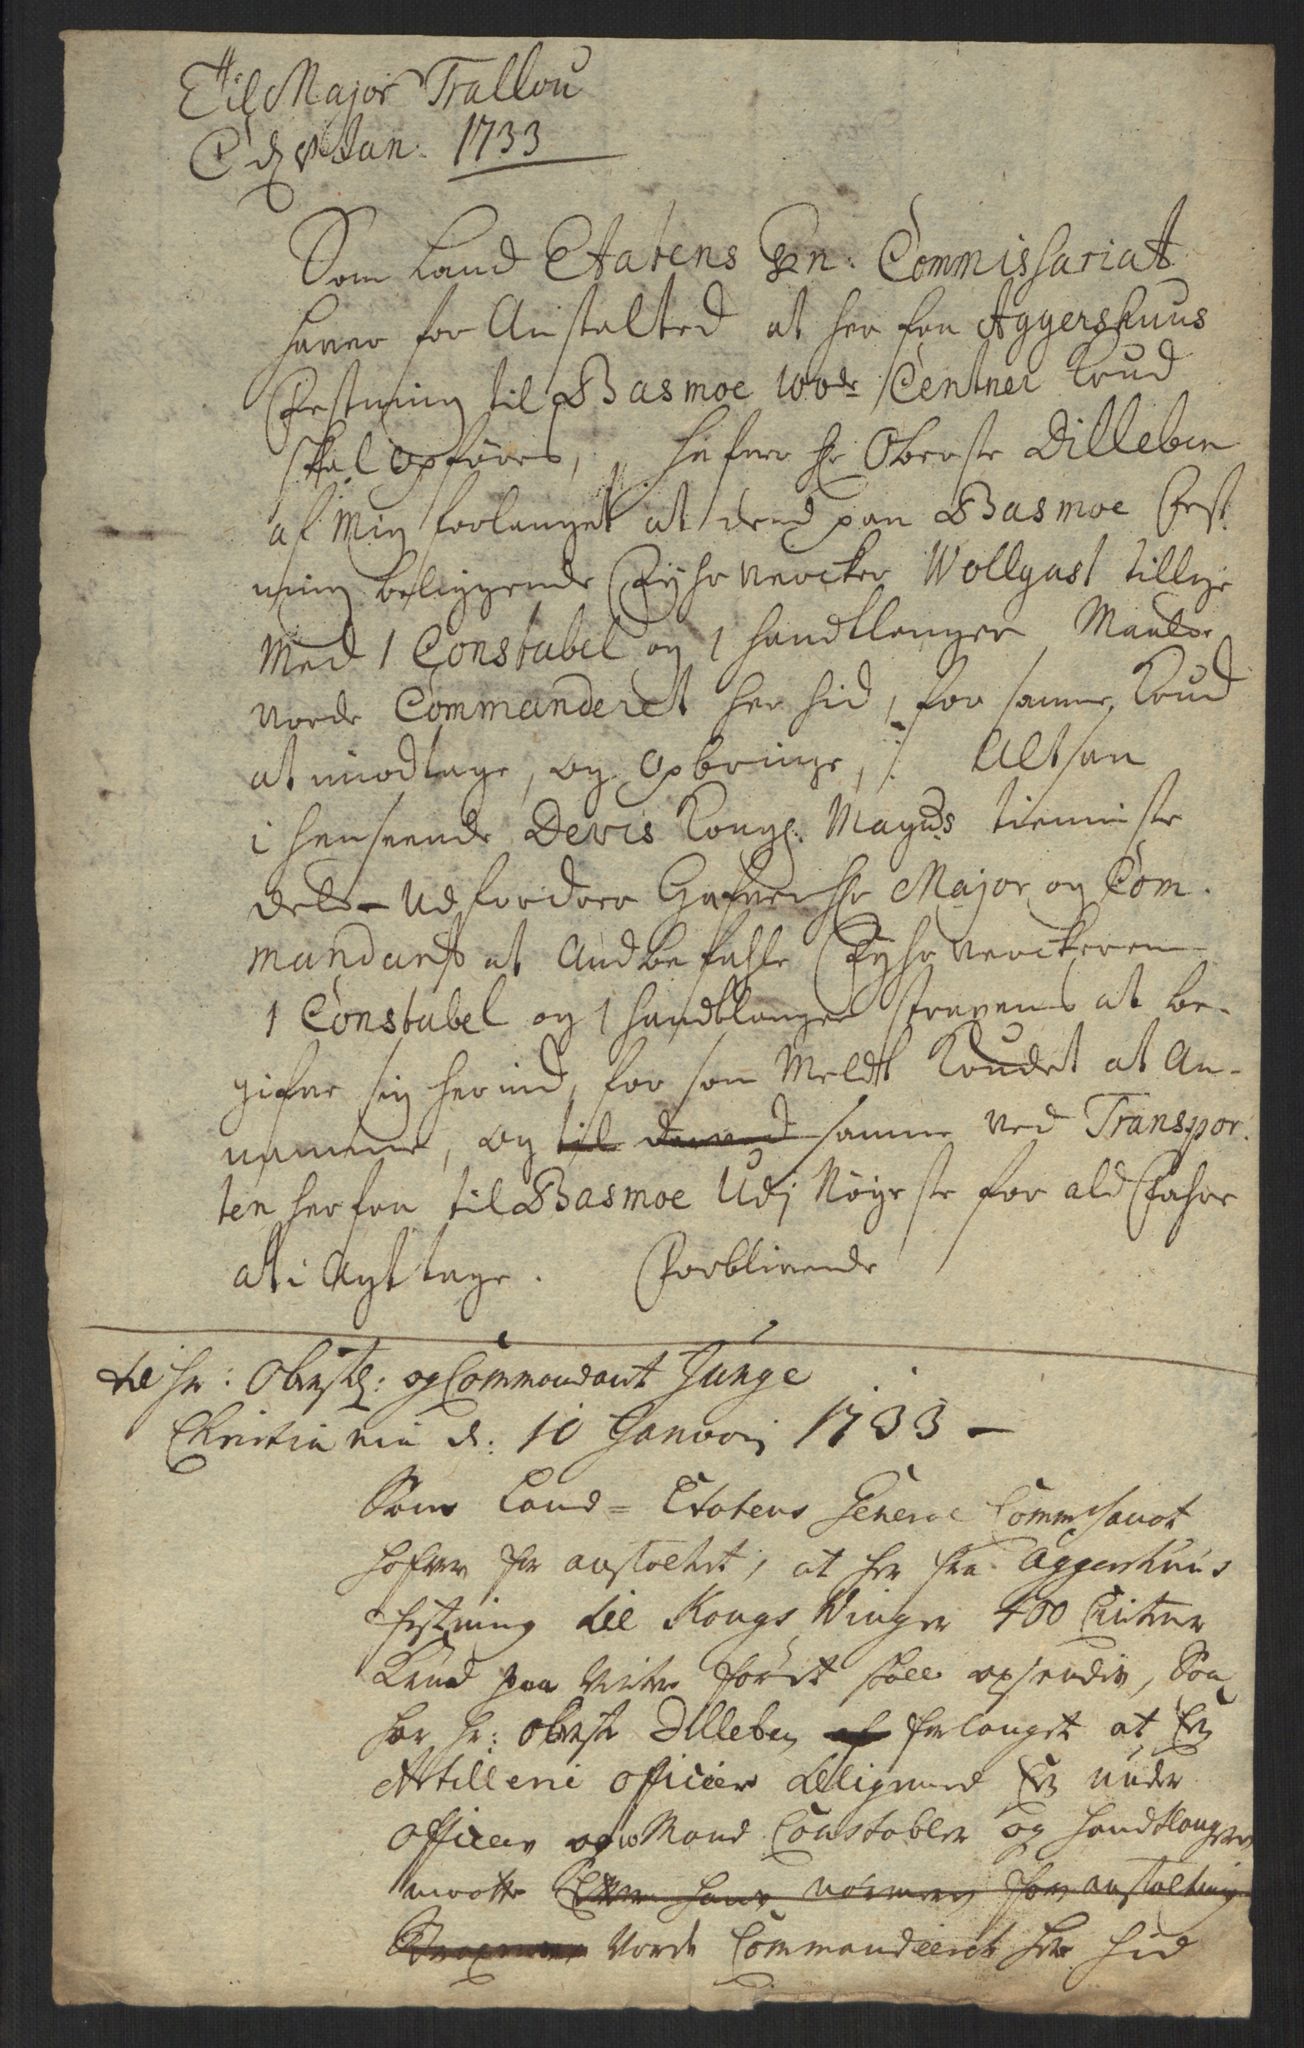 Til Major Trallou
C d 8 Jan. 1733
Som Land Etatens Gen. Commissariat
haver for Anstalted at her fra Aggershuus
Festning til Basmoe 100de Centner Krud
skal opføres, hafver Hr Oberste Dilleben
af Mig forlanget at dend paa Basmoe Fest
ning beliggende Fyhrvercker Wollgast tillige
Med 1 Constabel og 1 Handtlanger Maatte
vorde Commanderet her hid, for samme Krud
at imodtage, og opbringe, Altsaa
i henseende Deris Kongl. Mayds tienniste
dets Udfordrer Hafver Hr Major og Com.
mandant at Andbefahle Fyhrverckeren
1 Constabel og 1 Handtlanger straxens at be-
gifve sig herind, for som Meldt Krudet at An-
namme, og til derved samme ved Transpor.
ten herfra til Basmoe Udj Nøyeste for ald Fahre
at i Agt tage. Forblivende
til Hr: Obristl: og Commandant Junge
Christiania d: 10 Januarij 1733 -
Som Land = Etatens General Commissariat
hafver for anstaltet, at her fra Aggershuus
festning til Kongs Vinger 400 Centner
Krud paa Vinter føret skall opsendis, Saa
har Hr: Obriste Dilleben af forlanget at En
Artillerie Officier tilligemed En under
Officer og 10 Mand Constabler og Handtlangere
maatte for anstaltning
Vorde Commandeeret her hid